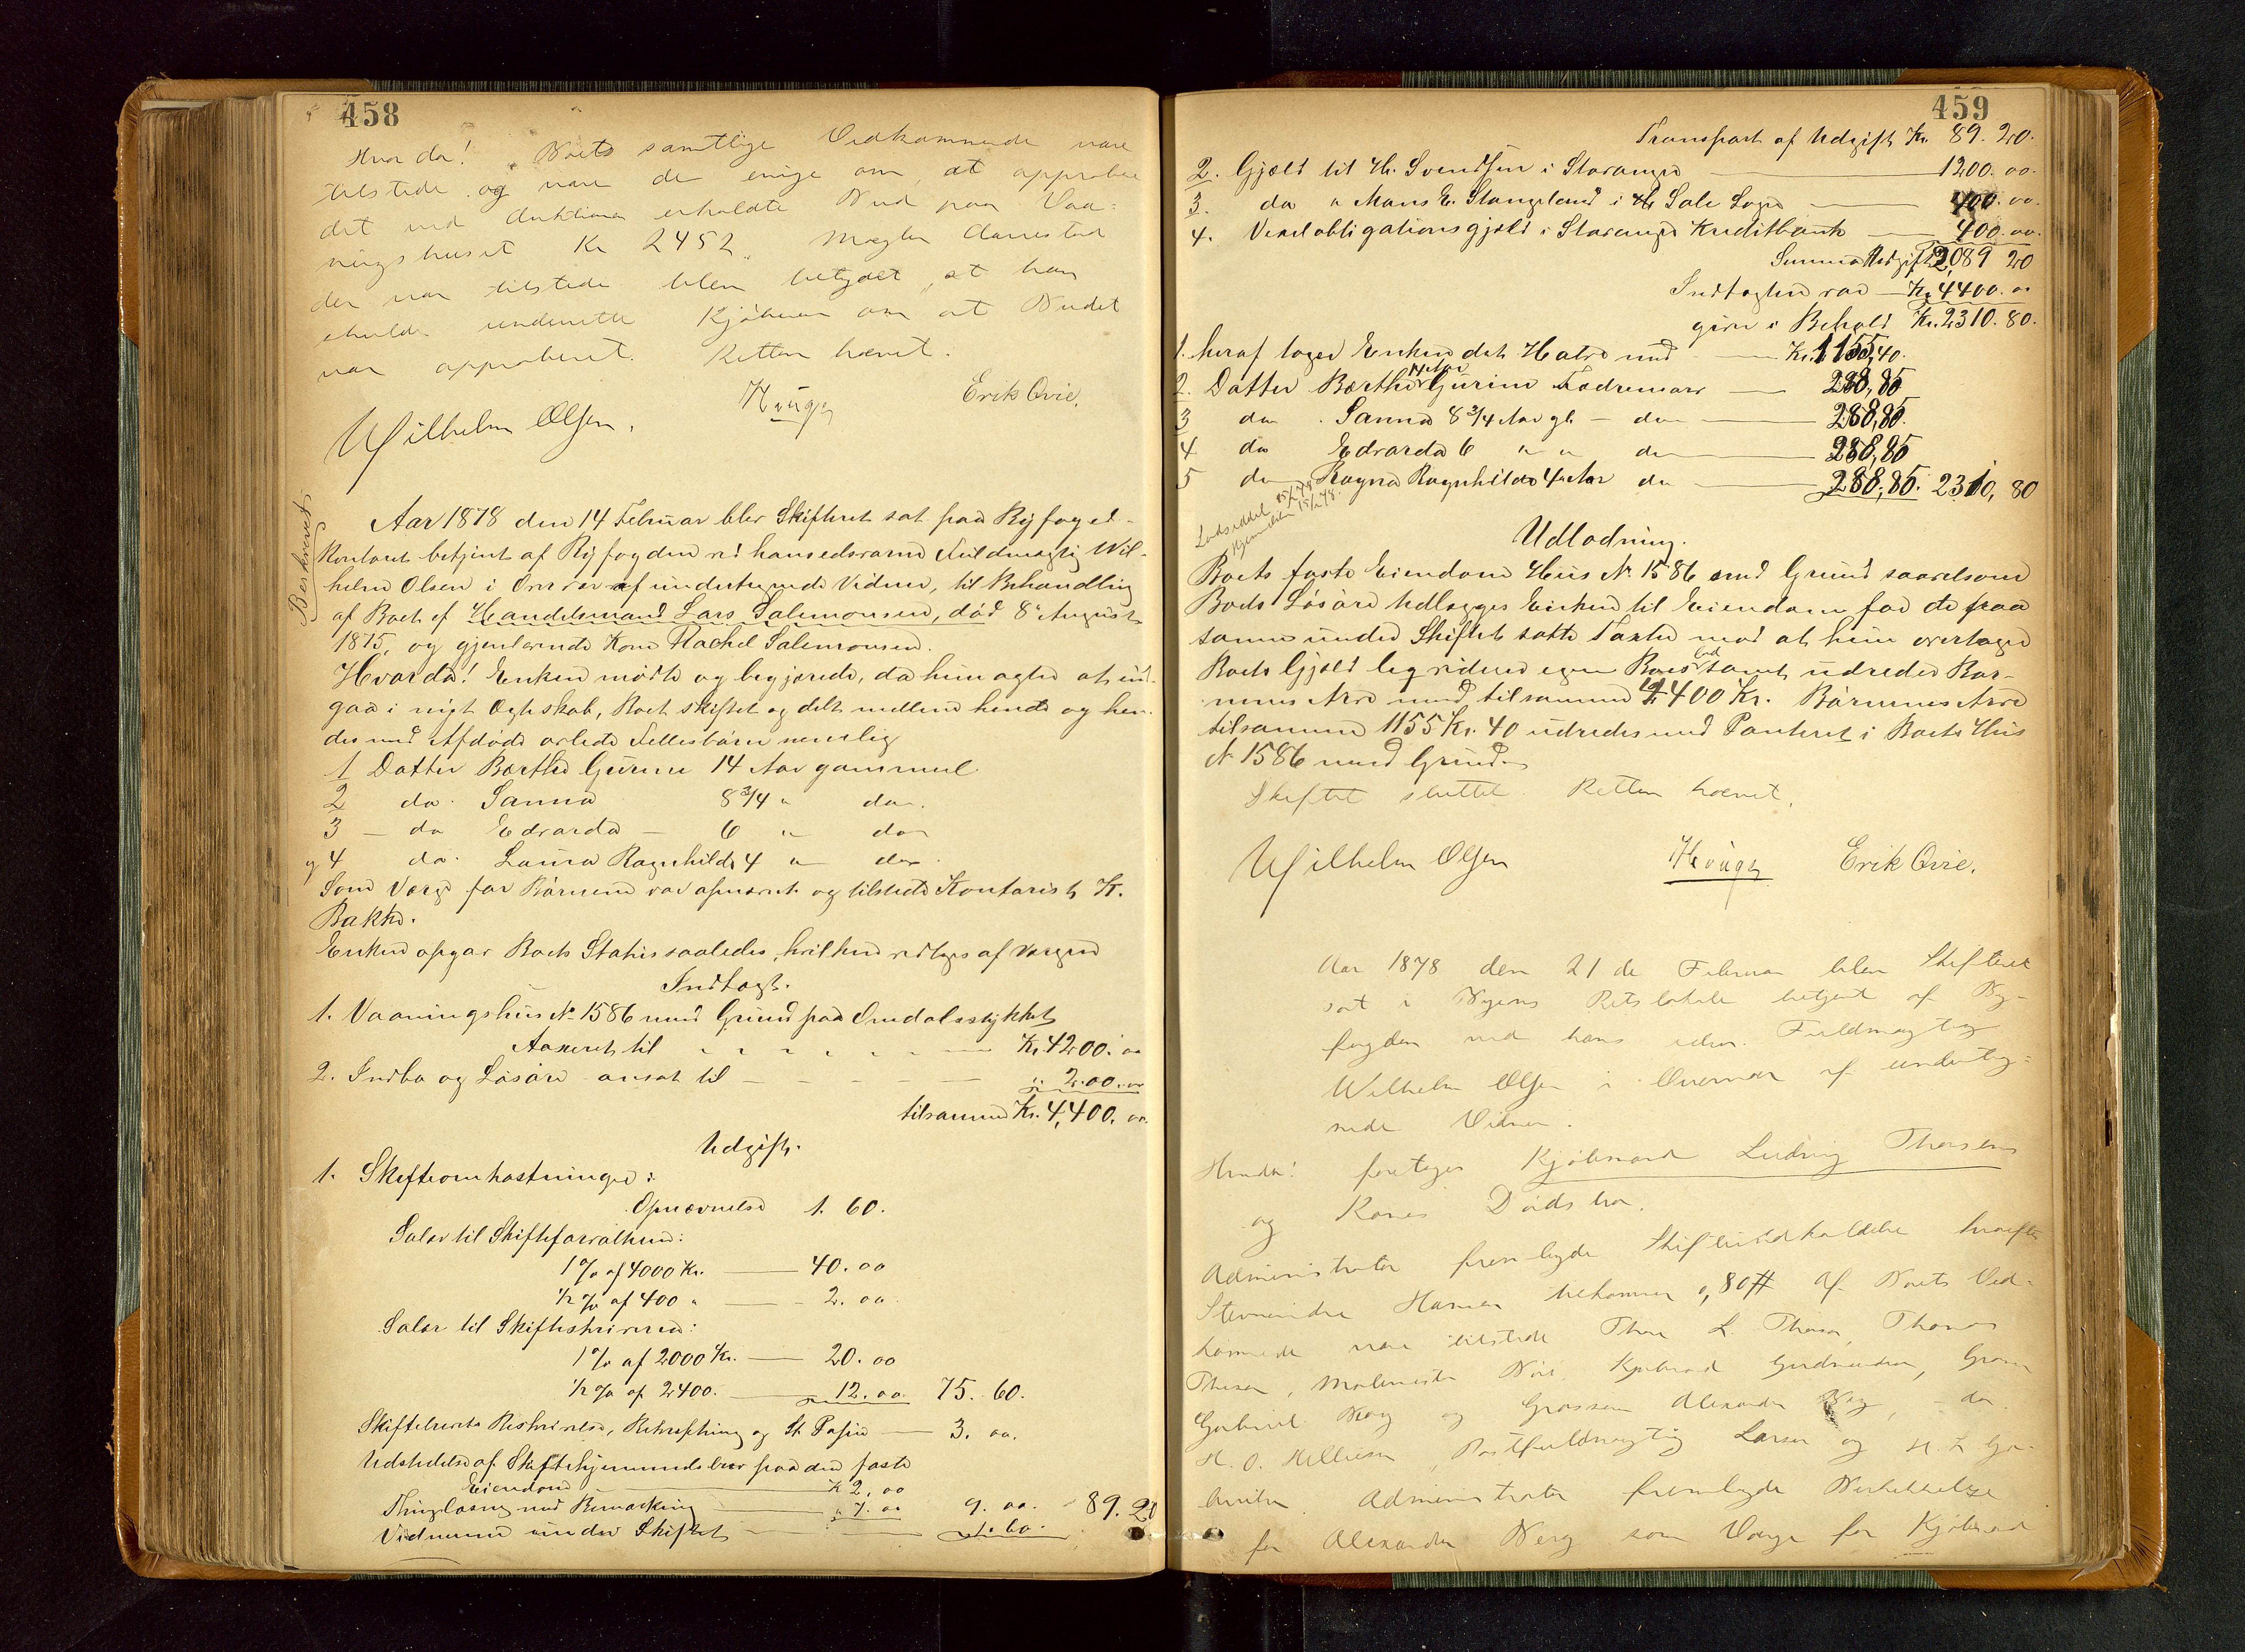 458
Hvorda! Boets samtlige Vedkommende vare
tilstede og vare de enige om, at approbere
det ved Auktionen erholdte Bud paa Vaa-
ningshuset Kr 2452. Mægler Danested
der var tilstede blev betydet, at han
skulde underrette Kjøberen om at Budet
var approberet. Retten hævet.
Wilhelm Olsen. Hauge Erik Qvie.
Beskrevet
Aar 1878 den 14 Februar blev Skifteret sat paa Byfoged-
Kontoret betjent af Byfogden ved hans edsvorne Fuldmægtig Wil-
helm Olsen i Overvær af undertegnede Vidner, til Behandling
af Boet ef Handelsmand Lars Salemonsen, død 8de August
1875, og gjenlevende Kone Rachel Salemonsen.
Hvorda! Enken mødte og begjærede, da hun agter at ind-
gaa i nyt Ægteskab, Boet skiftet og delt mellem hende og hen-
des med Afdøde avlede Fellesbørn nemlig
1 Datter Berthe Gurine 14 Aar gammel
2 do. Sanna 8 3/4 " do.
3 - do Edvarda - 6 " do
og 4 do. Laura Ragnhilde 4 " do.
Som Verge for Børnene var opnævnt og tilstede Kontorist K.
Bakke.
Enken opgav Boets Status saaledes, hvilken vedtoges af Vergen
Indtægt.
1. Vaaningshus No 1586 med Grund paa Omdalsstykket
Taxeret til Kr. 4200. 00
2. Indbo og Løsøre ansat til " 200. 00
tilsammen Kr. 4,400. 00.
Udgift.
1. Skifteomkostninger:
Opnævnelse 1. 60.
Salær til Skifteforvalteren:
1 % af 4000 Kr. 40. 00
1/2 % af 400 " 2. 00
Salær til Skifteskriveren:
1 % af 2000 Kr. 20. 00
1/2 % af 2400. 12. 00 75. 60.
Skiftebrevets Beskrivelse, Bekræftning og St. Papir 3. 00.
Udstedelse af Skiftehjemmelsbrev paa den faste
Eiendom K 2, 00
Thinglæsning med Bemærkning " 7. 00 9. 00. 89. 20
Vidnerne under Skiftet 1. 60.
459
Transport af Udgift Kr. 89. 20.
2. Gjæld til H. Svendsen i Stavanger 1200. 00.
3. do " Mons E. Stangeland i H Sole Sogn 400. 00.
4. Vexelobligationsgjæld i Stavanger Kreditbank 400. 00.
Summa Udgift 2,089 20
Indtægten var Kr. 4400. 00
giver i Behold Kr. 2310. 80.
1. heraf tager Enken det Halve med Kr. 1155,40.
2. Datter Berthe 14 Aar Gurine Fædrenearv 288,85
3 do. Sanna 8 3/4 Aar gl. - do 288,85.
4 do Edvarda 6 " " do 288,85
5 do Ragna Ragnhilde 4 Aar do 288,85. 2310, 80
Lodseddel 15/2 78.
Hjemmelsbrev 15/2 78.
Udlodning.
Boets faste Eiendom Hus No. 1586 med Grund saavelsom
Boets Løsøre udlægges Enken til Eiendom for de paa
samme under Skiftet satte Taxter mod at hun overtager
Boets Gjæld ligesom egen Boeslod samt udreder Bør-
nenes Arv med tilsammen 4400 Kr. Børnenes Arv
tilsammen 1155 Kr. 40 udredes med Panteret i Boets Hus
No 1586 med Grund.
Skiftet sluttet. Retten hævet.
Wilhelm Olsen Hauge Erik Qvie.
Aar 1878 den 21de Februar blev Skifteret
sat i Byens Retslokale betjent af By-
fogden ved hans edsv. Fuldmægtig
Wilhelm Olsen i Overvær af underteg-
nede Vidner.
Hvorda! foretoges Kjøbmand Ludvig Thorsens
og Kones Dødsbo.
Administrator fremlagde Skifteindkaldelse hvorfor
Stevnevidne Hansen bekommer 0,80 # Af Boets Ved-
kommende vare tilstede Thore L. Thorsen, Thomas
Thorsen, Malermester Kjøbmand Gudmundsen,
Gabriel Berg og Grosserer Alexander Berg, - do
H. O. Helliesen, Postfuldmægtig Larsen og
Administrator fremlagde Beskikkelse
for Alexander Berg som Værge for Kjøbmand